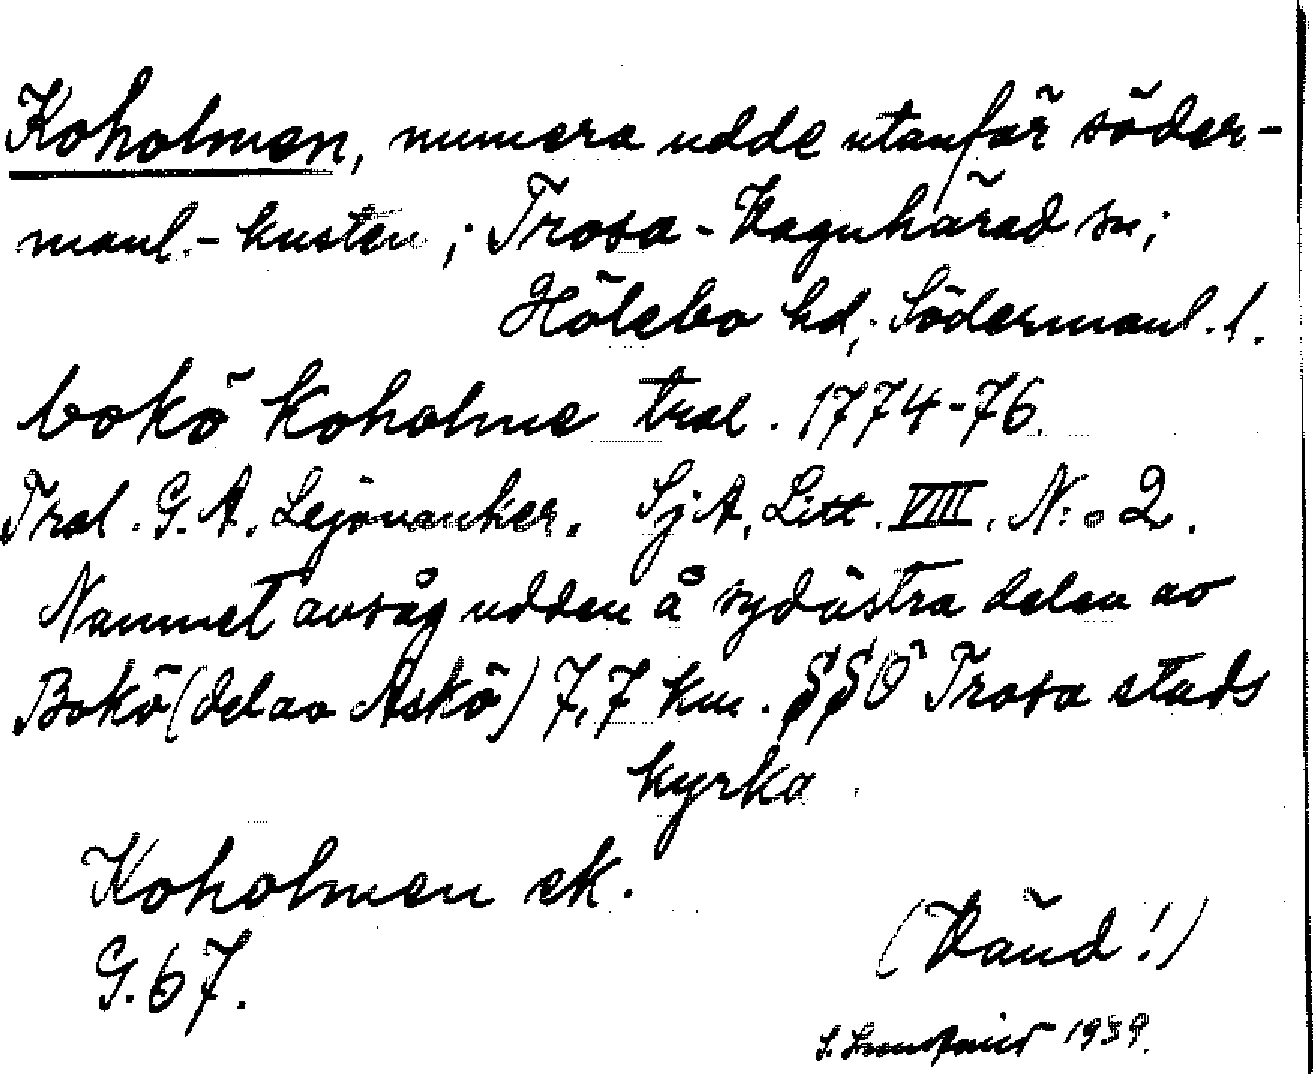 Koholmen, numera udde utanför söder-
manl.-kusten; Trosa-Vagnhärad sn;
Hölebo hd; Södermanl. l.
bokö koholme tral. 1774-76.
Tral. G. A. Lejonanker. Sj.A. Litt. VIII. N:o 2.
Namnet avsåg udden å sydöstra delen av
Bokö (del av Askö) 7,7 km. SSO Trosa stads
kyrka.
Koholmen ek.
G. 67.
(Vänd!)
1939.